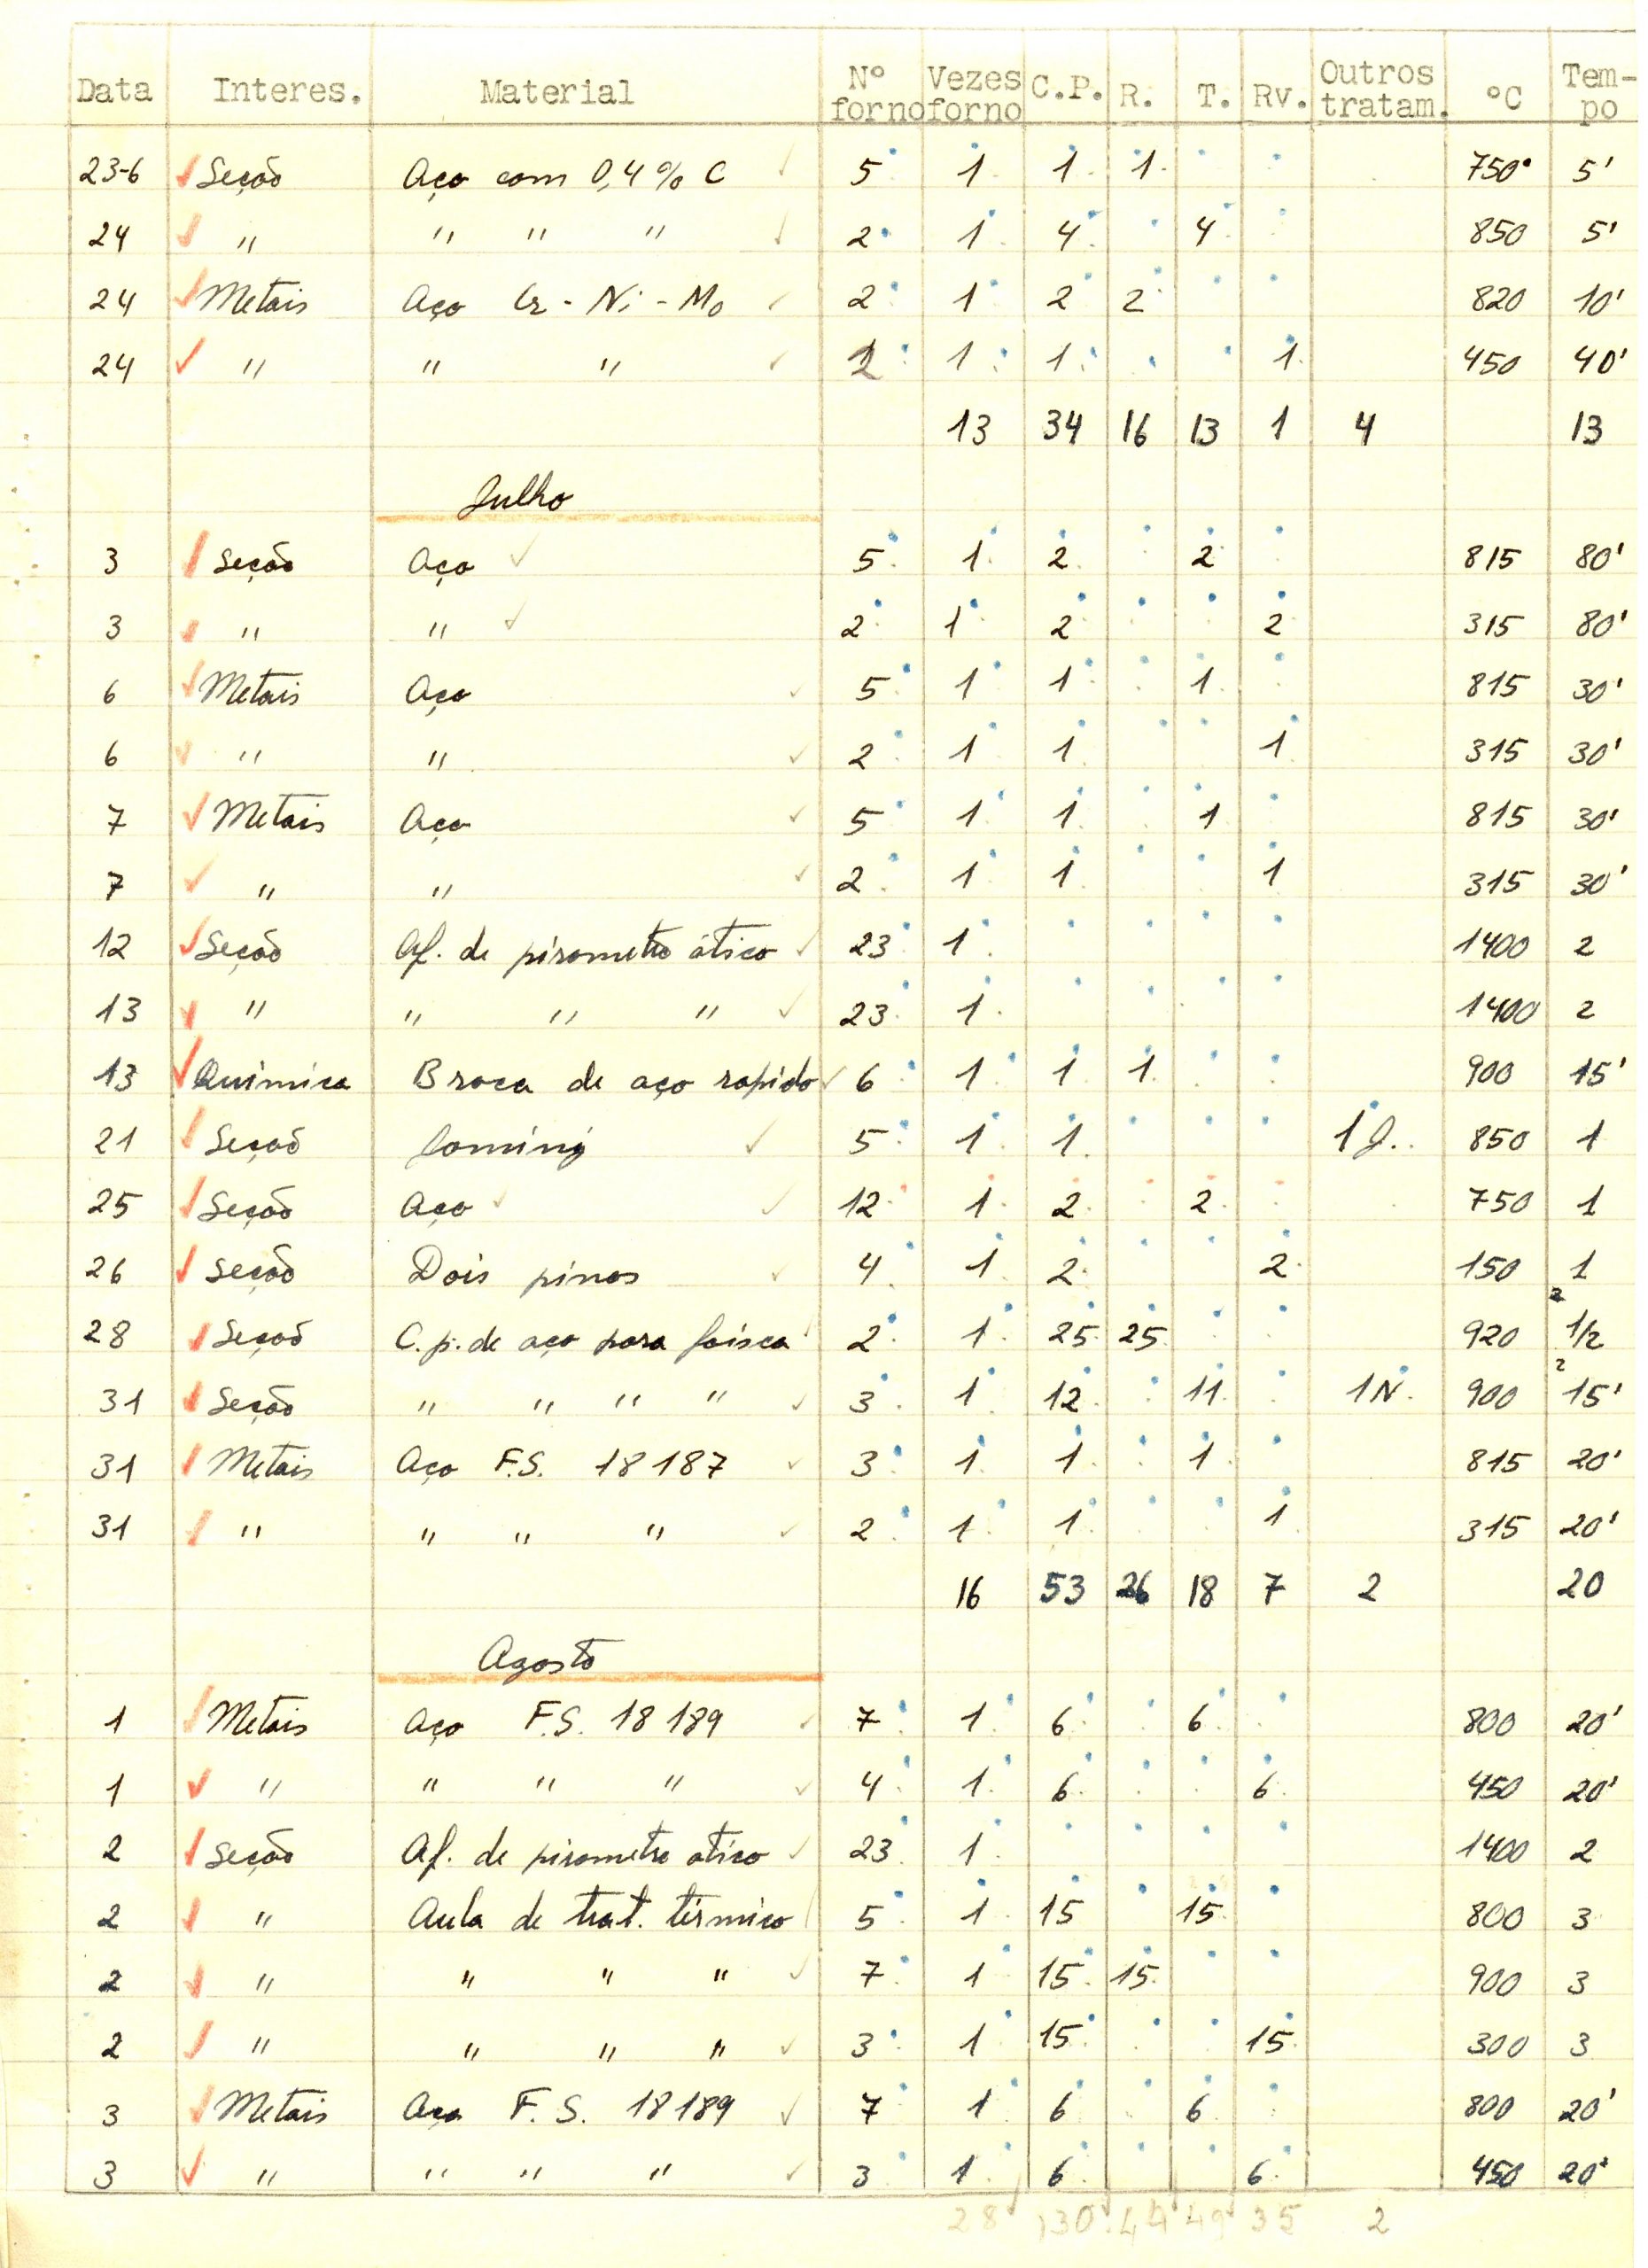 Data Interes. Material Nº forno Vezes forno C.P. R. T. Rv. Outros tratam. ºC Tem-po
23-6 Seção Aço com 0,4% C 5 1 1 1 750° 5'
24 " " " " 2 1 4 4 850 5'
24 Metais Aço Cr - Ni - Mo 2 1 2 2 820 10'
24 " " " 2 1 1 1 450 40'
13 34 16 13 1 4 13
Julho
3 Seção Aço 5 1 2 2 815 80'
3 " " 2 1 2 2 315 80'
6 Metais Aço 5 1 1 1 815 30'
6 " " 2 1 1 1 315 30'
7 Metais Aço 5 1 1 1 815 30'
7 " " 2 1 1 1 315 30'
12 Seção Af. de pirometro ótico 23 1 1400 2
13 " " " " 23 1 1400 2
13 Quimica Broca de aço rapido 6 1 1 1 900 15'
21 Seção Jominy 5 1 1 1 J. 850 1
25 Seção Aço 12 1 2 2 750 1
26 Seção Dois pinos 4 1 2 2 150 1
28 Seção C.p. de aço para faisca 2 1 25 25 920 2 1/2
31 Seção " " " " 3 1 12 11 1 N. 900 2 15'
31 Metais Aço F.S. 18187 3 1 1 1 815 20'
31 " " " " 2 1 1 1 315 20'
16 53 26 18 7 2 20
Agosto
1 Metais Aço F.S. 18189 7 1 6 6 800 20'
1 " " " " 4 1 6 6 450 20'
2 Seção Af. de pirometro otico 23 1 1400 2
2 " Aula de trat. térmico 5 1 15 15 800 3
2 " " " " 7 1 15 15 900 3
2 " " " " 3 1 15 15 300 3
3 Metais Aço F.S. 18189 7 1 6 6 800 20'
3 " " " " 3 1 6 6 450 20'
28 130 44 49 35 2